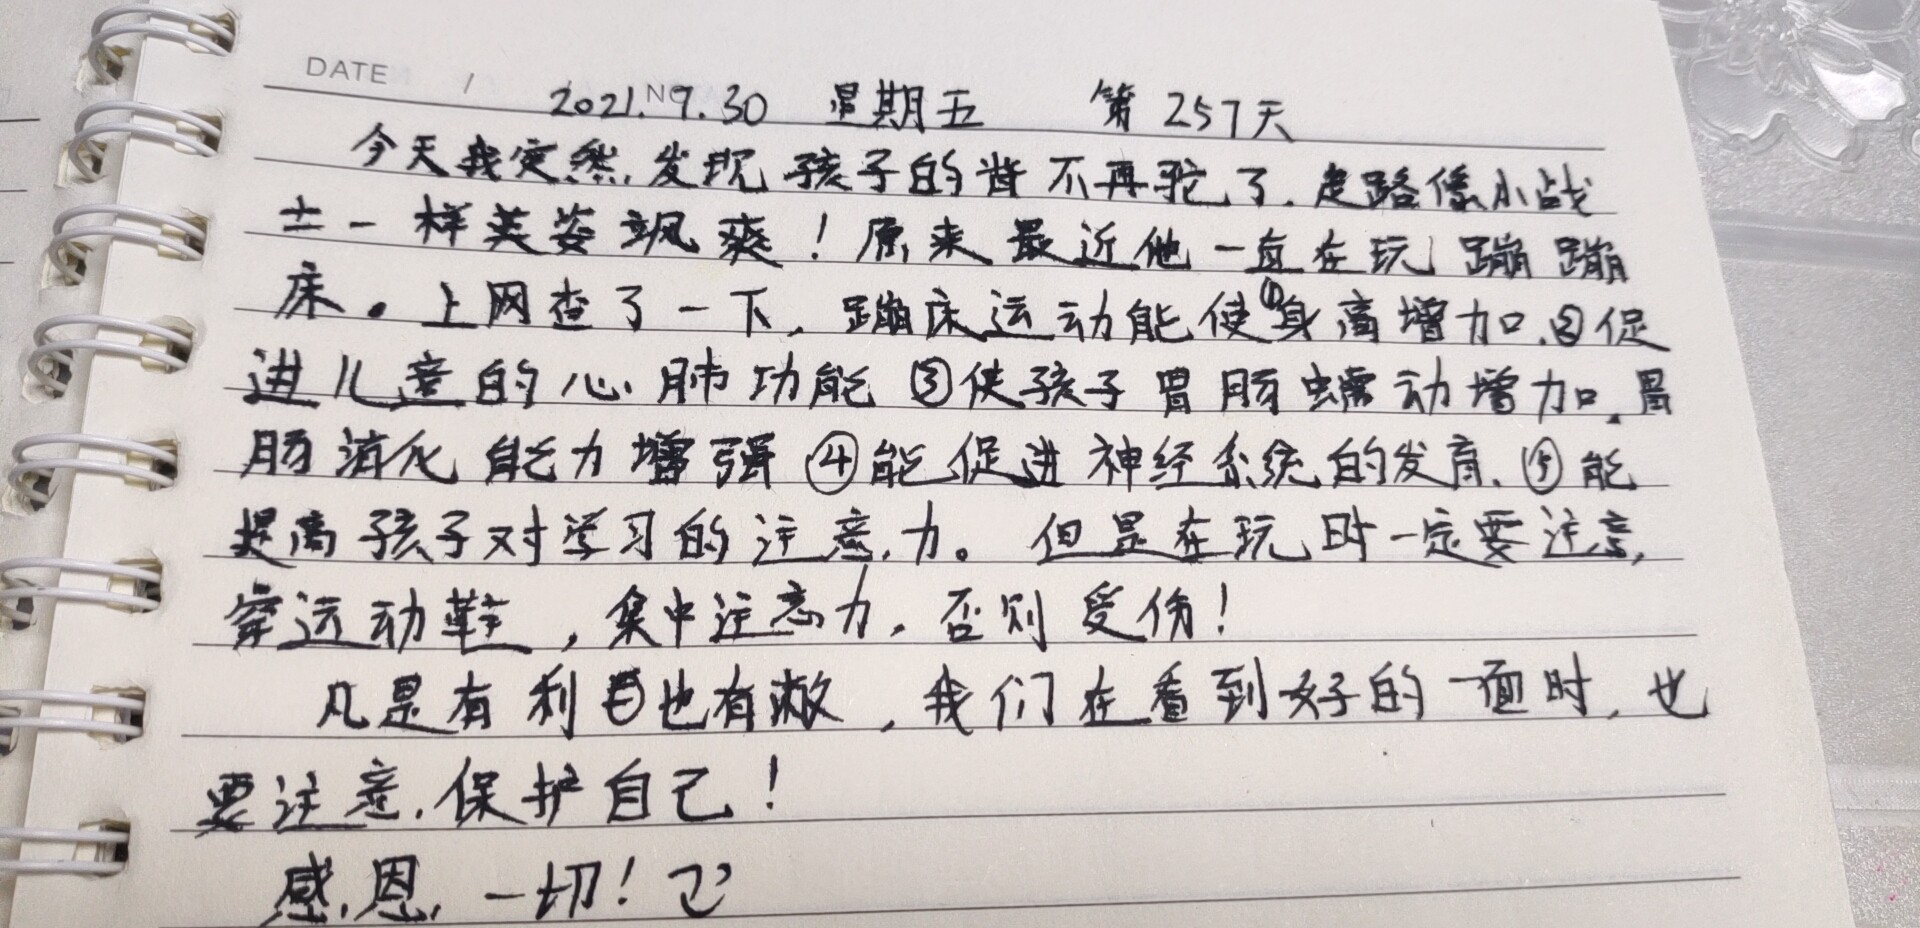 DATE / NO.
2021.9.30 星期五 第257天
今天我突然发现孩子的背不再驼了.走路像小战
士一样英姿飒爽！原来最近他一直在玩蹦蹦
床。上网查了一下,蹦床运动能使①身高增加.②促
进儿童的心肺功能③使孩子胃肠蠕动增加.胃
肠消化能力增强④能促进神经系统的发育.⑤能
提高孩子对学习的注意力。但是在玩时一定要注意,
穿运动鞋,集中注意力,否则受伤！
凡是有利也有敝,我们在看到好的一面时,也
要注意,保护自己！
感恩一切！